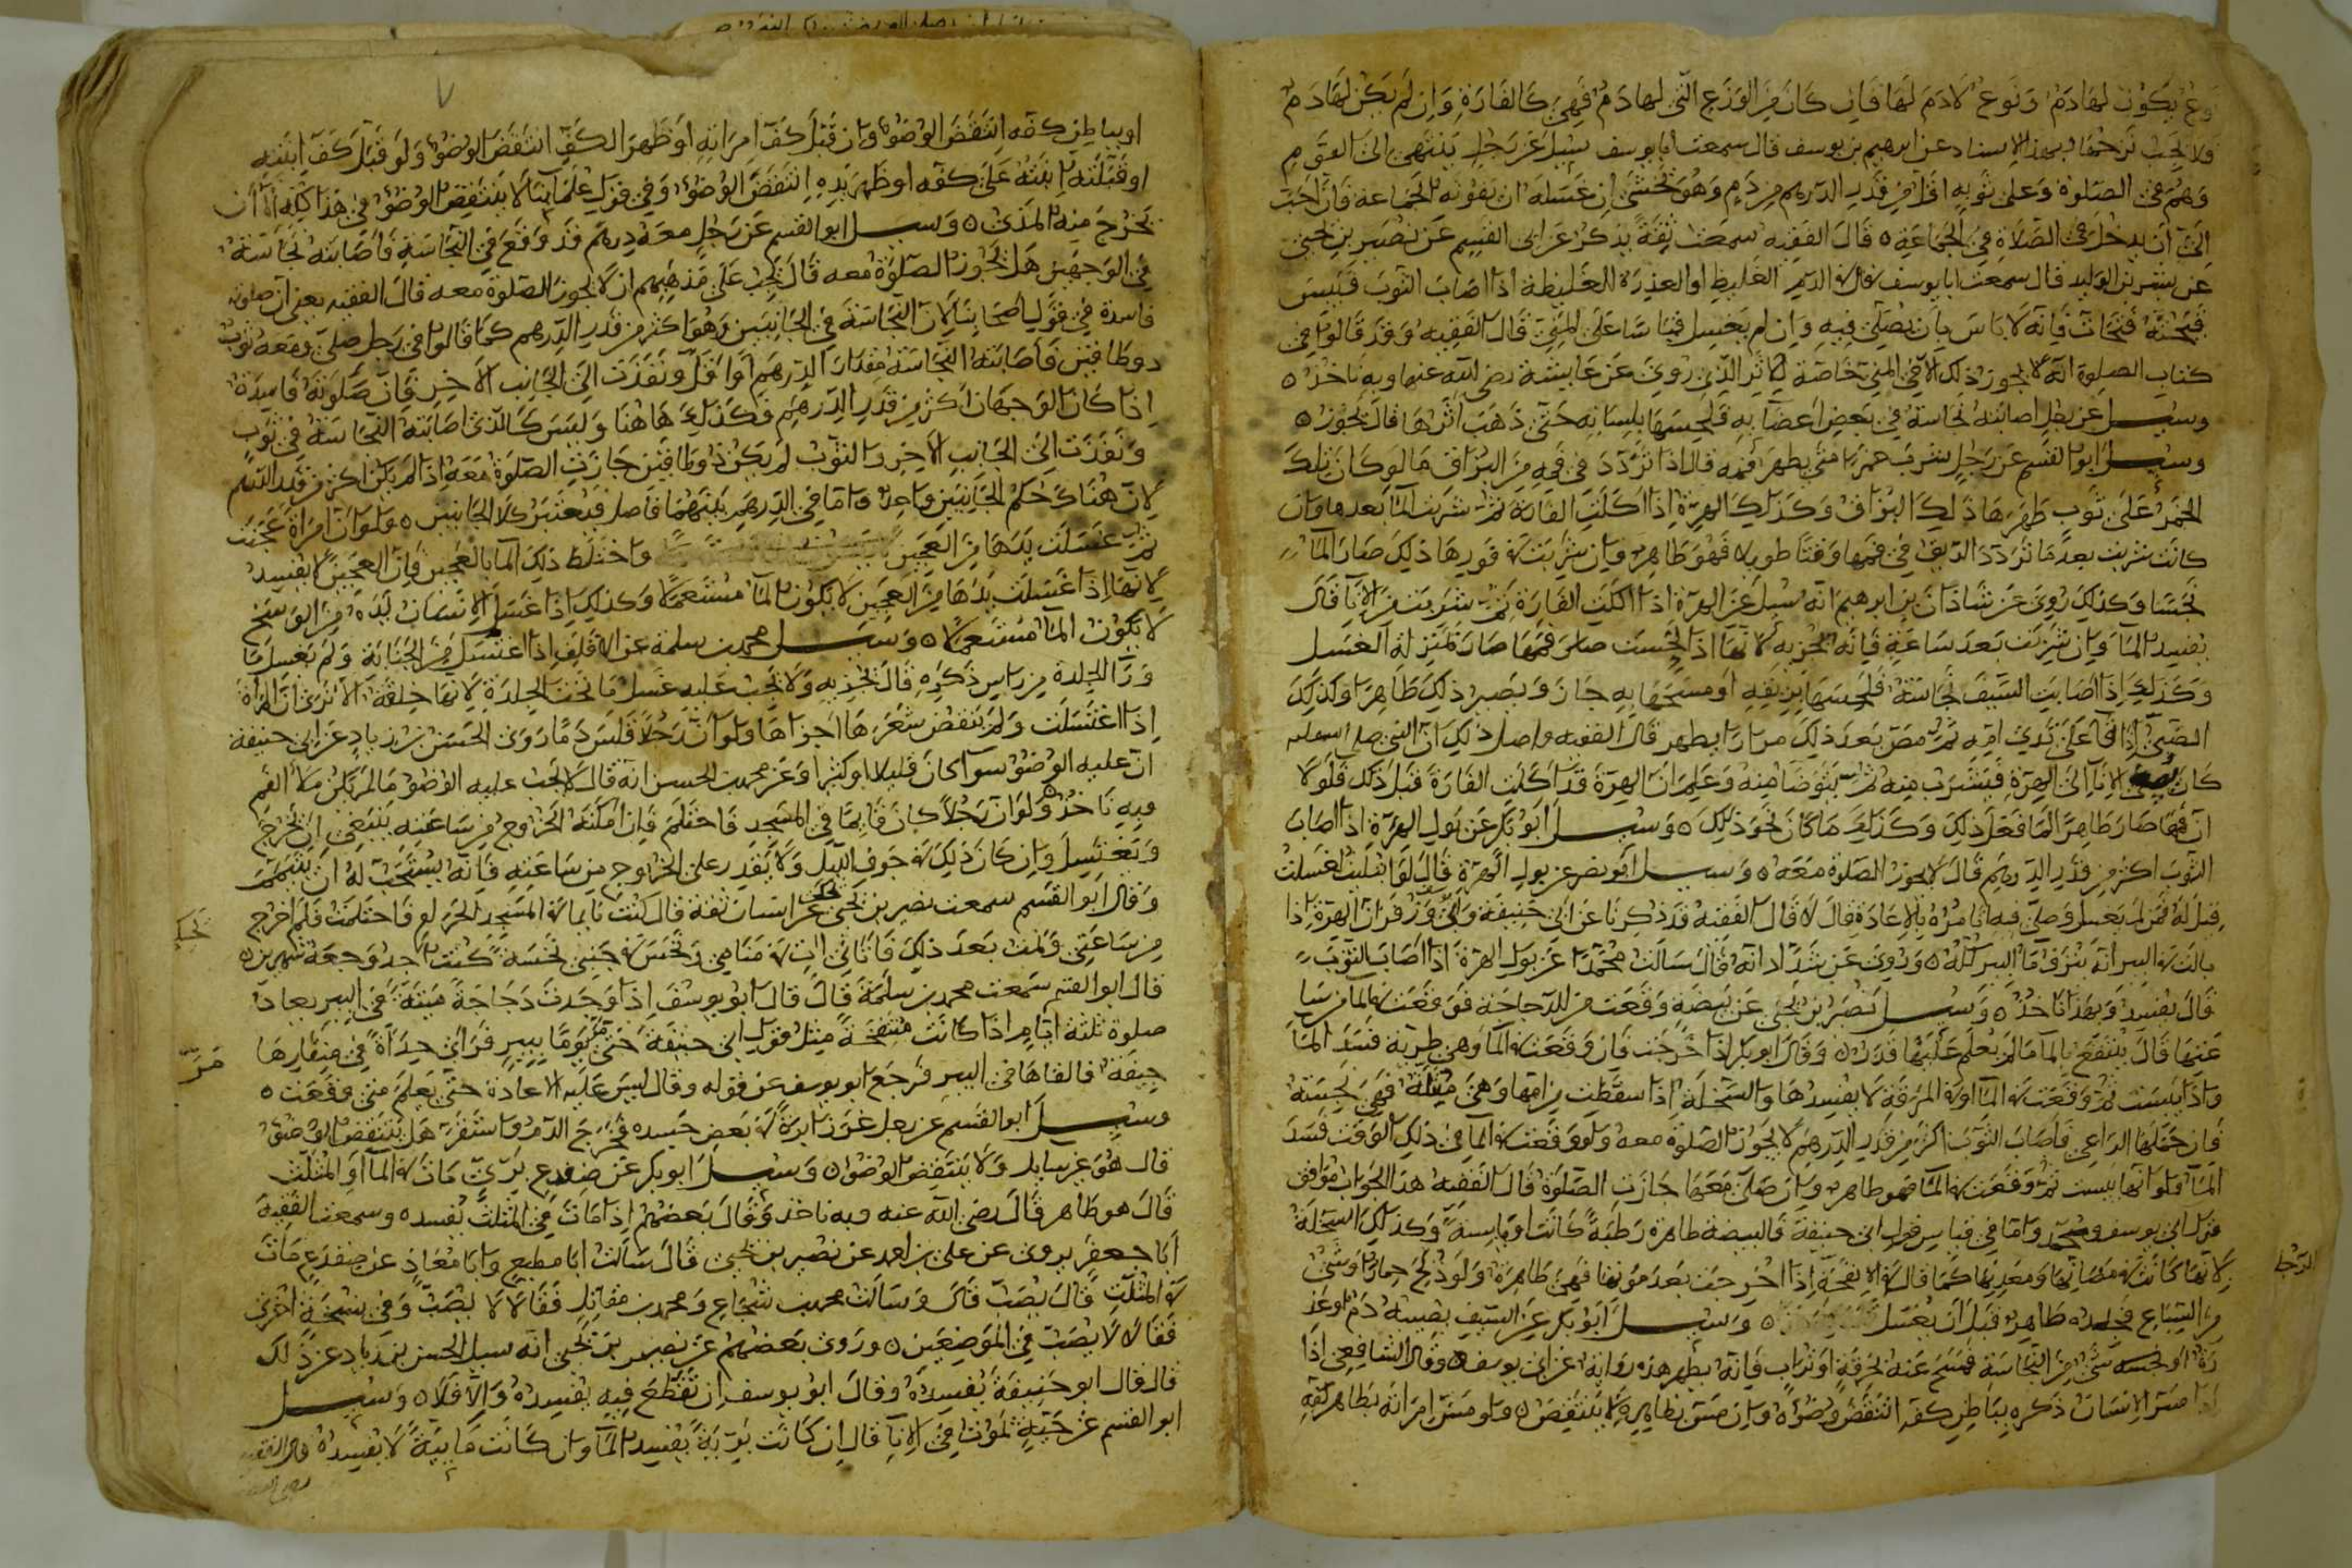 نوع يكون لها دم ونوع لا دم لها فان كان من الوزغ التي لها دم فهي كالفارة وان لم يكن لها دم
فلا يجب نزحها وبهذا الاسناد عن ابرهيم بن يوسف قال سمعت ابا يوسف سيل عن رجل ينتهي الى القوم
وهم في الصلوة وعلى ثوبه اقل من قدر الدرهم من دم وهو يخشى ان غسله ان تفوته الجماعة فان احب
الي ان يدخل في الصلاة في الجماعة قال الفقيه سمعت ثقة يذكر عن ابي القسم عن نصير بن يحيى
عن بشر بن الوليد قال سمعت ابا يوسف قال في الدم الغليظ او العذرة الغليظة اذا اصاب الثوب فيبس
فحته فتحات فانه لا باس بان يصلي فيه وان لم يغسل قياسا على المني قال الفقيه وقد قالوا في
كتاب الصلوة انه لا يجوز ذلك الا في المني خاصة للاثر الذي روي عن عايشة رضي الله عنها وبه ناخذ
وسيل عن رجل اصابته نجاسة في بعض اعضايه فلحسها بلسانه حتى ذهب اثرها قال يجوز
وسيل ابو القسم عن رجل شرب خمرا متى يطهر فمه قال اذا تردد في فيه من البزاق ما لو كان تلك
الخمر على ثوب طهرها ذلك البزاق وكذلك الهرة اذا اكلت الفارة ثم شربت الما بعدها وان
كانت شربت بعد ما تردد الريق في فمها وقتا طويلا فهو طاهر وان شربت في فورها ذلك صار الما
نجسا وكذلك روي عن شاذان بن ابرهيم انه سيل عن الهرة اذا اكلت الفارة ثم شربت من الانآ قال
يفسد الما وان شربت بعد ساعة فانه يجزيه لانها اذا لحست صار فمها صار بمنزلة الغسل
وكذلك اذا اصابت السيف نجاسة فلحسها بريقه او مسحها به جاز ويصير ذلك طاهرا وكذلك
الصبي اذا قا على ثدي امه ثم مص بعد ذلك مرارا يطهر قال الفقيه واصل ذلك ان النبي صلى الله عليه
كان يصغي الانا الى الهرة فيشرب منه ثم يتوضا منه وعلم ان الهرة قد اكلت الفارة قبل ذلك فلولا
ان فمها صار طاهرا لما فعل ذلك وكذلك ما كان نحو ذلك وسيل ابو بكر عن بول الهرة اذا اصاب
الثوب اكثر من قدر الدرهم قال لا يجوز الصلوة معه وسيل ابو نصر عن بول الهرة قال لو ابتليت لغسلت
قيل له فمن لم يغسل وصلى فيه اتامره بالاعادة قال لا قال الفقيه قد ذكرنا عن ابي حنيفة وابي يوسف وزفر ان الهرة اذا
بالت في البير انه ينزف ما البير كله وروي عن شداد انه قال سالت محمدا عن بول الهرة اذا اصاب الثوب
قال يفسد وبهذا ناخذ وسيل نصير بن يحيى عن بيضة وقعت من الدجاجة فوقعت في الما من ساعتها
قال ينتفع بالما ما لم يعلم عليها قذر وقال ابو بكر اذا خرجت فان وقعت في الما وهي طرية فسد الما
واذا يبست ثم وقعت في الما او في المرقة لا يفسدها والسخلة اذا سقطت من امها وهي مبتلة فهي نجسة
فان حملها الراعي فاصاب الثوب اكثر من قدر الدرهم لا يجوز الصلوة معه ولو وقعت في الما في ذلك الوقت فسد
الما ولو انها يبست ثم وقعت في الما فهو طاهر وان صلى معها جازت الصلوة قال الفقيه هذا الجواب موافق
قول ابي يوسف ومحمد واما في قياس قول ابي حنيفة فالبيضة طاهرة رطبة كانت او يابسة وكذلك السخلة
لانها كانت في مكانها ومعدنها كما قال في الانفحة اذا اخرجت بعد موتها فهي طاهرة ولو ذبح حمارا او شي
من السباع فجلده طاهر قبل ان يغسل وسيل ابو بكر عن السيف يصيبه دم او عذ
رة او نجسه شي من النجاسة فمسح عنه بخرقة او تراب فانه يطهر هذه رواية عن ابي يوسف وقال الشافعي اذا
اذا مس الانسان ذكره بباطن كفه انتقض وضوه وان مس بظاهره لا ينتقض ولو مس امراته بظاهر كفه
الرجا
او بباطن كفه انتقض الوضو وان قبل كف امراته او ظهر الكف انتقض الوضو ولو قبل كف ابنته
او قبلته ابنته على كفه او ظهر يده انتقض الوضو وفي قول علماينا لا ينتقض الوضو في هذا كله الا ان
يخرج منه المذي وسيل ابو القسم عن رجل معه درهم قد وقع في النجاسة فاصابته نجاسة
في الوجهين هل يجوز الصلوة معه قال يجب على مذهبهم ان لا يجوز الصلوة معه قال الفقيه يعني ان صلوته
فاسدة في قول اصحابنا لان النجاسة في الجانبين وهو اكثر من قدر الدرهم كما قالوا في رجل صلى ومعه ثوب
ذو طاقين فاصابته النجاسة مقدار الدرهم او اقل ونفذت الى الجانب الاخر فان صلوته فاسدة
اذا كان الوجهان اكثر من قدر الدرهم فكذلك هاهنا وليس كالذي اصابته النجاسة في ثوب
ونفذت الى الجانب الاخر والثوب لم يكن ذو طاقين جازت الصلوة معه اذا لم يكن اكثر من قدر الدرهم
لان هناك حكم الجانبين واحد واما في الدرهم بينهما فاصل فيعتبر كلا الجانبين ولو ان امراة عجنت
ثم غسلت يدها من العجين واختلط ذلك الما بالعجين فان العجين لا يفسد
لانها اذا غسلت يدها من العجين لا يكون الما مستعملا وكذلك اذا غسل الانسان يده من الوسخ
لا يكون الما مستعملا وسيل محمد بن سلمة عن الاقلف اذا اغتسل من الجنابة ولم يغسل ما
ورا الجلدة من راس ذكره قال يجزيه ولا يجب عليه غسل ما تحت الجلدة لانها خلقة الا ترى ان المراة
اذا اغتسلت ولم ينقض شعرها اجزاها ولو ان رجلا قلس دما روى الحسن بن زياد عن ابي حنيفة
ان عليه الوضو سوا كان قليلا او كثيرا وعن محمد بن الحسن انه قال لا يجب عليه الوضو ما لم يكن ملا الفم
وبه ناخذ ولو ان رجلا كان قايما في المسجد فاحتلم فان امكنه الخروج من ساعته ينبغي ان يخرج
ويغتسل وان كان ذلك في جوف الليل ولا يقدر على الخروج من ساعته فانه يستحب له ان يتيمم
وقال ابو القسم سمعت نصير بن يحيى يحكى عن انسان ثقة قال كنت نايما في المسجد الحرام فاحتلمت فلم اخرج
من ساعتي ونمت بعد ذلك فاتاني ات في منامي ونخس في جنبي نخسة كنت اجد وجعه شهرين
قال ابو القسم سمعت محمد بن سلمة قال قال ابو يوسف اذا وجدت دجاجة ميتة في البير يعاد
صلوة ثلثة ايام اذا كانت منتفخة مثل قول ابي حنيفة حتى مر يوما ببير فراى حداة في منقارها
جيفة فالقاها في البير فرجع ابو يوسف عن قوله وقال ليس عليه الاعادة حتى يعلم متى وقعت
وسيل ابو القسم عن رجل غرز ابرة في بعض جسده فخرج الدم واستقر هل ينتقض الوضو
قال هو غير سايل ولا ينتقض الوضو وسيل ابو بكر عن ضفدع بري مات في الما او المثلث
قال هو طاهر قال رضي الله عنه وبه ناخذ وقال بعضهم اذا مات في المثلث يفسده وسمعت الفقيه
ابا جعفر يروي عن علي بن احمد عن نصير بن يحيى قال سالت ابا مطيع وابا معاذ عن ضفدع مات
في المثلث قال يصب قال وسالت محمد بن شجاع ومحمد بن مقاتل فقالا لا يصب وفي نسخة اخرى
فقالا لا يصب في الموضعين وروى بعضهم عن نصير بن يحيى انه سيل الحسن بن زياد عن ذلك
قال قال ابو حنيفة يفسده وقال ابو يوسف ان تقطع فيه يفسده والا فلا وسيل
ابو القسم عن حية تموت في الانآ قال ان كانت برية يفسد الما وان كانت مايية لا يفسده قال الفقيه